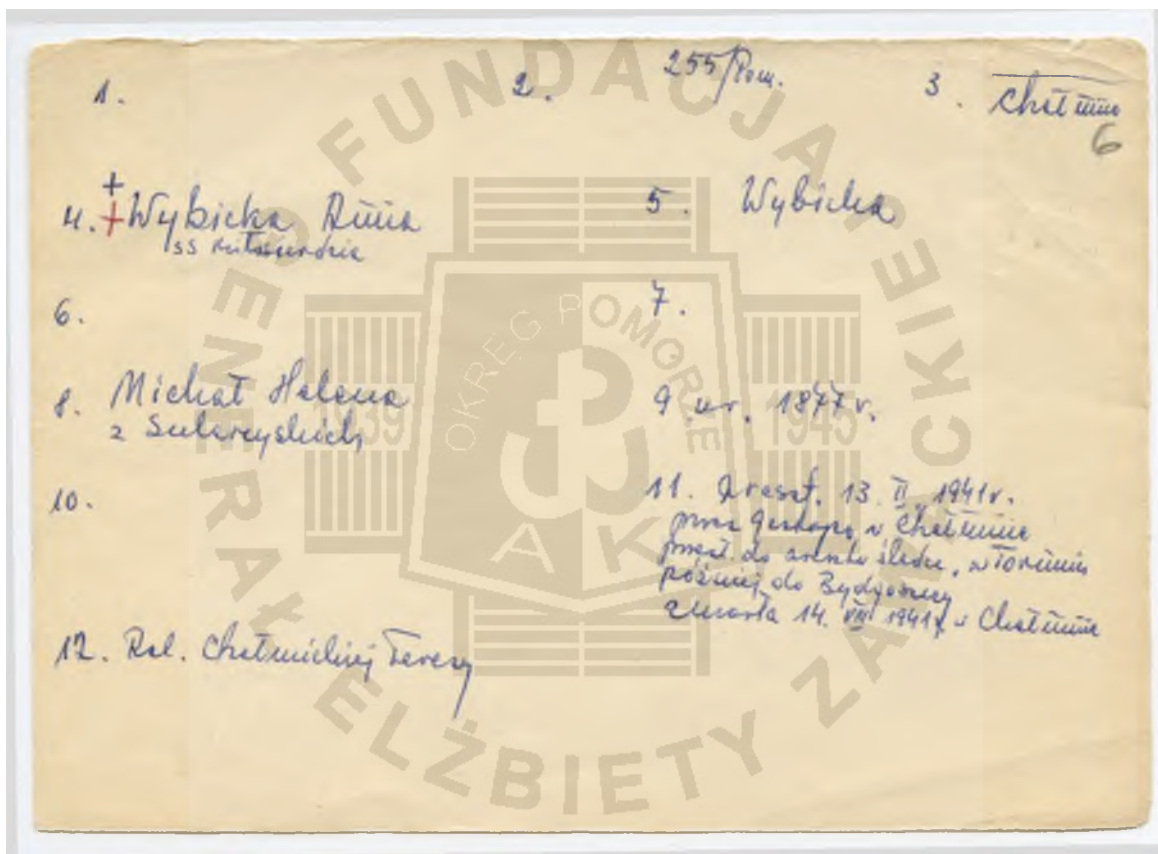 1.
2.
255/Pom.
3. Chełmno
6
4. + + Wybicka Anna
ss miłosierdzia
5. Wybicka
6.
7.
8. Michał Helena
z
9. ur. 1877 r.
10.
11. Areszt. 13. II. 1941 r.
przez gestapo w Chełmnie
przesł. do aresztu śledcz. w Toruniu
później do Bydgoszczy
zmarła 14. VIII 1941 r. w Chełmnie
12. Rel. Chełmickiej Teresy
FUNDACJA
GENERAŁ ELŻBIETY ZAWACKIEJ
OKRĘG POMORZE
1939
1945
AK